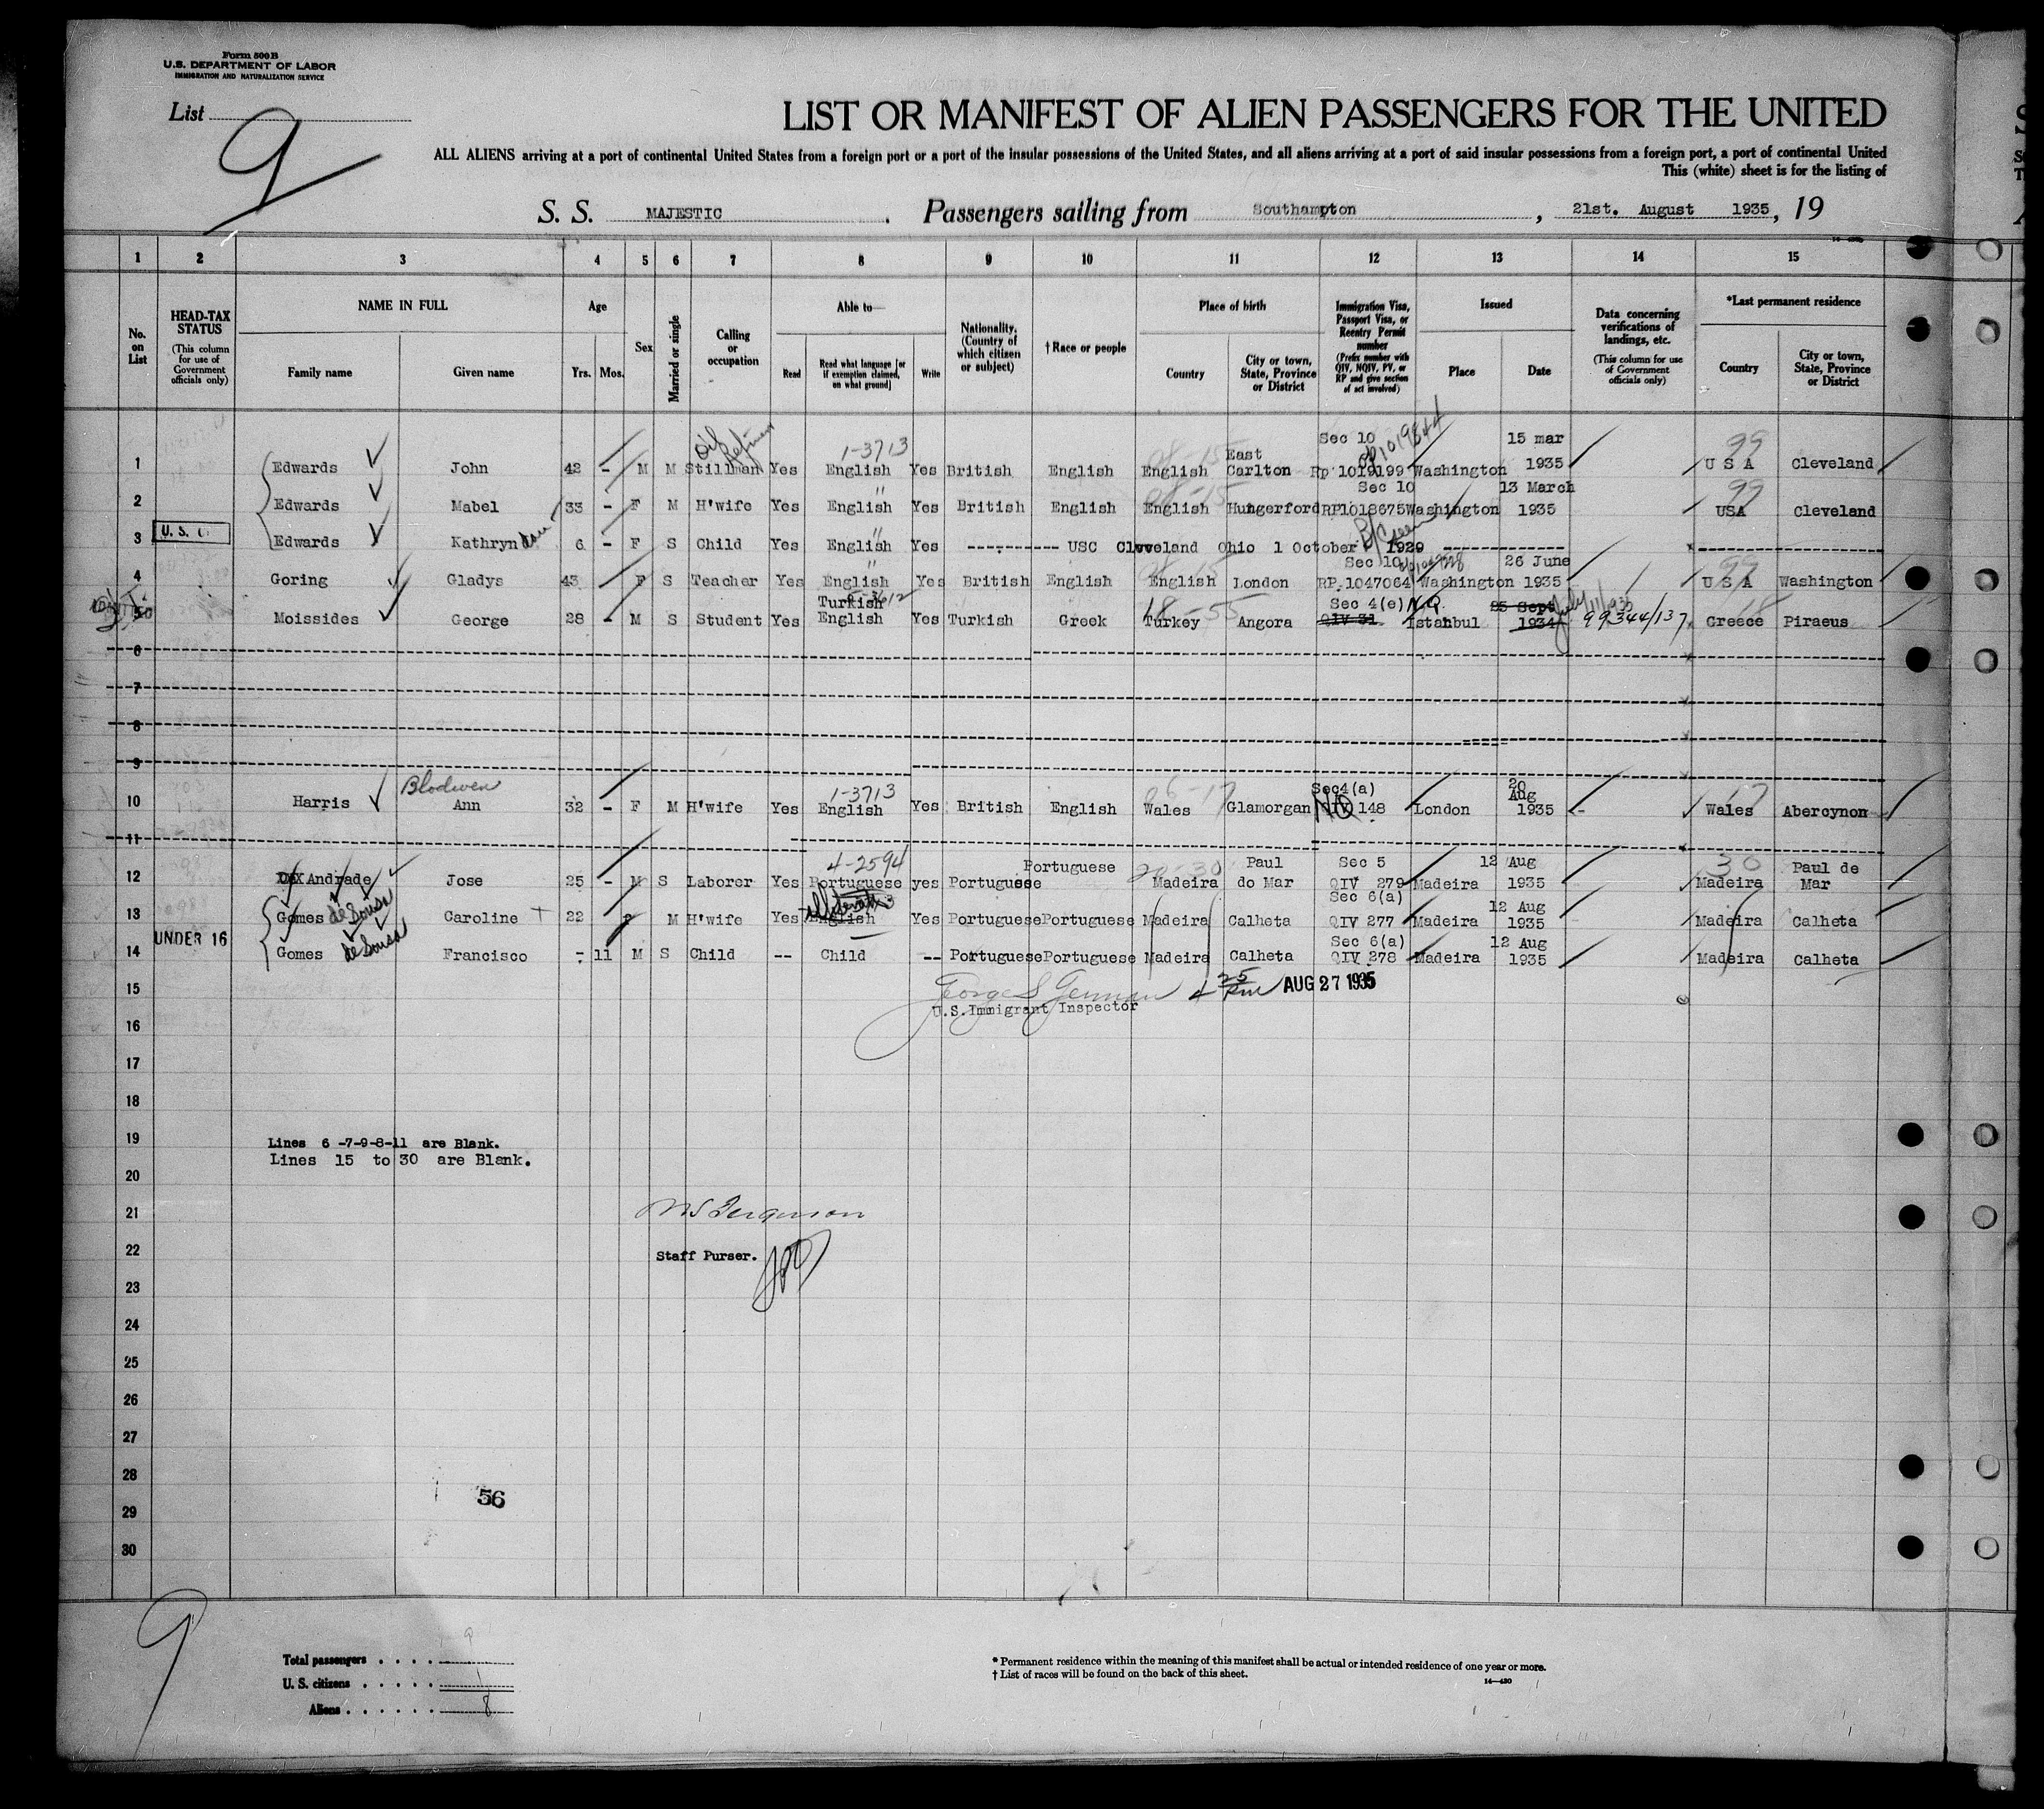 Form 500B
U.S. DEPARTMENT OF LABOR
IMMIGRATION AND NATURALIZATION SERVICE
List 9
LIST OR MANIFEST OF ALIEN PASSENGERS FOR THE UNITED
ALL ALIENS arriving at a port of continental United States from a foreign port or a port of the insular possessions of the United States, and all aliens arriving at a port of said insular possessions from a foreign port, a port of continental United
This (white) sheet is for the listing of
S. S. MAJESTIC . Passengers sailing from Southampton , 21st. August 1935, 19
1 2 3 4 5 6 7 8 9 10 11 12 13 14 15
No. on List
HEAD-TAX STATUS (This column for use of Government officials only)
NAME IN FULL Family name Given name
Age Yrs. Mos.
Sex
Married or single
Calling or occupation
Able to— Read Read what language [or if exemption claimed, on what ground] Write
Nationality. (Country of which citizen or subject)
† Race or people
Place of birth Country City or town, State, Province or District
Immigration Visa, Passport Visa, or Reentry Permit number (Prefix number with QIV, NQIV, PV, or RP and give section of act involved)
Issued Place Date
Data concerning verifications of landings, etc. (This column for use of Government officials only)
*Last permanent residence Country City or town, State, Province or District
Oil Refinery 1-3713 East Sec 10 RP1019844 15 mar 99
1 Edwards John 42 - M M Stillman Yes English Yes British English English Carlton Rp 1019199 Washington 1935 U S A Cleveland
Sec 10 13 March 99
2 Edwards Mabel 33 - F M H'wife Yes English Yes British English English Hungerford RP1018675 Washington 1935 USA Cleveland
3 U. S. C. Edwards Kathryn 6 - F S Child Yes English Yes USC Cleveland Ohio 1 October 1929
Sec 10 26 June 99
4 Goring Gladys 43 F S Teacher Yes English Yes British English English London RP.1047064 Washington 1935 U S A Washington
ADMITTED Turkish Sec 4(e) N.Q. 25 Sept July 11/1935 18
5 Moissides George 28 - M S Student Yes English Yes Turkish Greek Turkey Angora QIV 31 Istanbul 1934 99344/137 Greece Piraeus
6
7
8
9
Blodwen 1-3713 Sec4(a) 20 Aug
10 Harris Ann 32 - F M H'wife Yes English Yes British English Wales Glamorgan NQ 148 London 1935 Wales Abercynon
11
4-2594 Portuguese Paul Sec 5 12 Aug 30 Paul de
12 Andrade Jose 25 - M S Laborer Yes Portuguese yes Portuguese Madeira do Mar QIV 279 Madeira 1935 Madeira Mar
Sec 6(a) 12 Aug
13 Gomes de Sousa Caroline 22 F M H'wife Yes English Yes Portuguese Portuguese Madeira Calheta QIV 277 Madeira 1935 Madeira Calheta
UNDER 16 Sec 6(a) 12 Aug
14 Gomes de Sousa Francisco - 11 M S Child -- Child -- Portuguese Portuguese Madeira Calheta QIV 278 Madeira 1935 Madeira Calheta
15 George S German 4 25 PM AUG 27 1935
U.S.Immigrant Inspector
16
17
18
19 Lines 6 -7-9-8-11 are Blank.
Lines 15 to 30 are Blank.
20
21 Ferguson
22 Staff Purser.
23
24
25
26
27
28
56
29
30
9
Total passengers 9
U. S. citizens 1
Aliens 8
* Permanent residence within the meaning of this manifest shall be actual or intended residence of one year or more.
† List of races will be found on the back of this sheet.
14—430